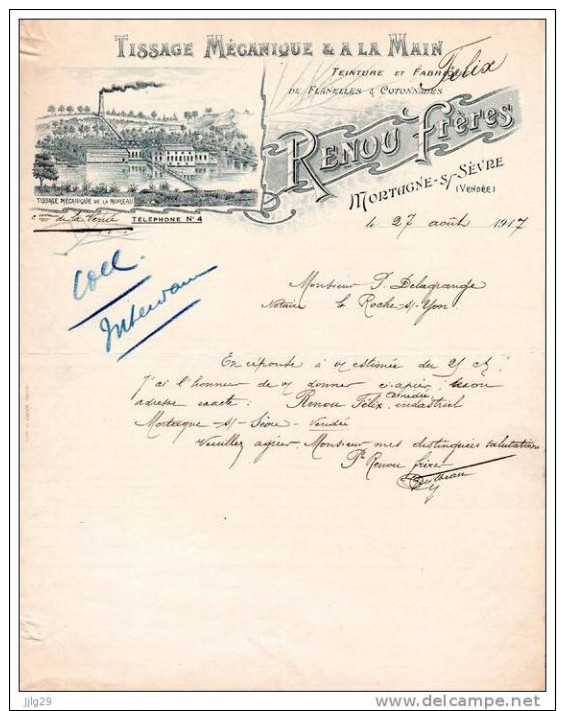 TISSAGE MÉCANIQUE & A LA MAIN
TEINTURE ET FABRIQUE
Félix
DE FLANELLES & COTONNADES
RENOU Frères
MORTAGNE-S/-SÈVRE
(VENDÉE)
TISSAGE MÉCANIQUE DE LA MOREAU
de la Verrie
TÉLÉPHONE Nº 4
le 27 août 1917
Coll.
Monsieur P. Delagrange
Notaire la Roche-s/-Yon
En réponse à v/ estimée du 25 ct
J'ai l'honneur de v/ donner ci-après
adresse exacte: Renou Félix industriel
Mortagne-s/-Sèvre Vendée
Veuillez agréer, Monsieur mes distinguées salutations
Pr Renou frères
jjlg29
delcampe.net